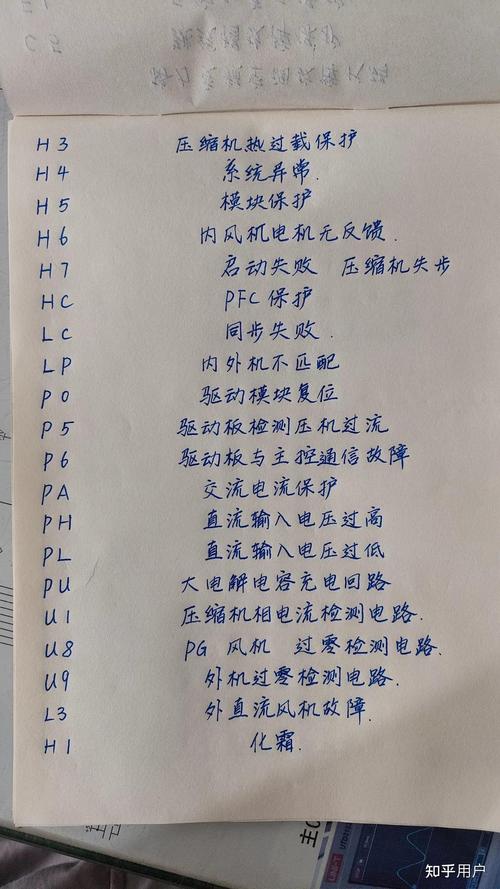 C 5
H 3 压缩机热过载保护
H 4 系统异常.
H 5 模块保护
H 6 内风机电机无反馈.
H 7 启动失败 压缩机失步
H C PFC 保护
L C 同步失败.
L P 内外机不匹配
P 0 驱动模块复位
P 5 驱动板检测压机过流
P 6 驱动板与主控通信故障
P A 交流电流保护
P H 直流输入电压过高
P L 直流输入电压过低
P U 大电解电容充电回路
U 1 压缩机相电流检测电路.
U 8 PG 风机 过零检测电路.
U 9 外机过零检测电路.
L 3 外直流风机故障.
H 1 化霜.
知乎用户